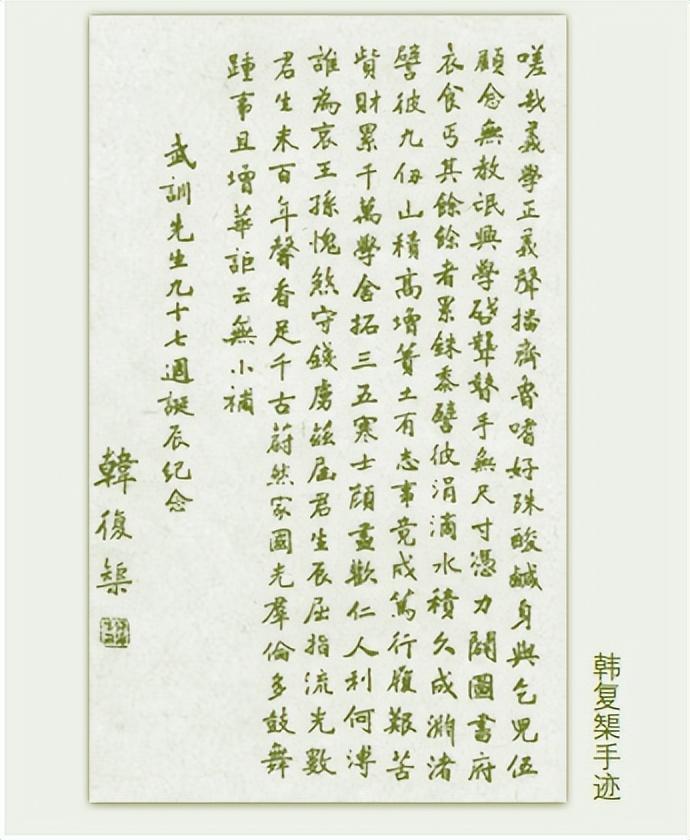 嗟哉義學正義聲播齊魯嗜好殊酸鹹身與乞兒伍
顧念無教氓興學啟聾瞽手無尺寸憑力闢圖書府
衣食丐其餘餘者累銖黍譬彼涓滴水積久成瀦渚
譬彼九仞山積高增簣土有志事竟成篤行履艱苦
貲財累千萬學舍拓三五寒士顏盡歡仁人利何溥
誰為哀王孫愧煞守錢虜茲屆君生辰屈指流光數
君生未百年聲香足千古蔚然家國光羣倫多鼓舞
踵事且增華詎云無小補
武訓先生九十七週誕辰紀念
韓復榘
韩复榘手迹